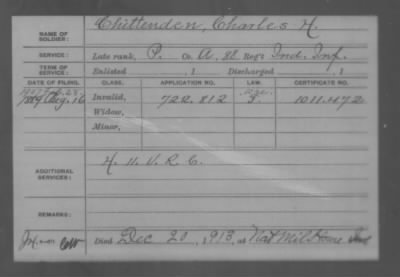 NAME OF SOLDIER: Chittenden, Charles H.
SERVICE: Late rank, P. Co. A, 88 Reg't Ind. Inf.
TERM OF SERVICE: Enlisted , 1 Discharged , 1
DATE OF FILING. CLASS. APPLICATION NO. LAW. CERTIFICATE NO.
Aug. 16 Invalid, 722.812 1011.472
Widow,
Minor,
ADDITIONAL SERVICES: H. 11. V. R. C.
REMARKS:
Died Dec 20, 1913, at Nat Mil Home Ind